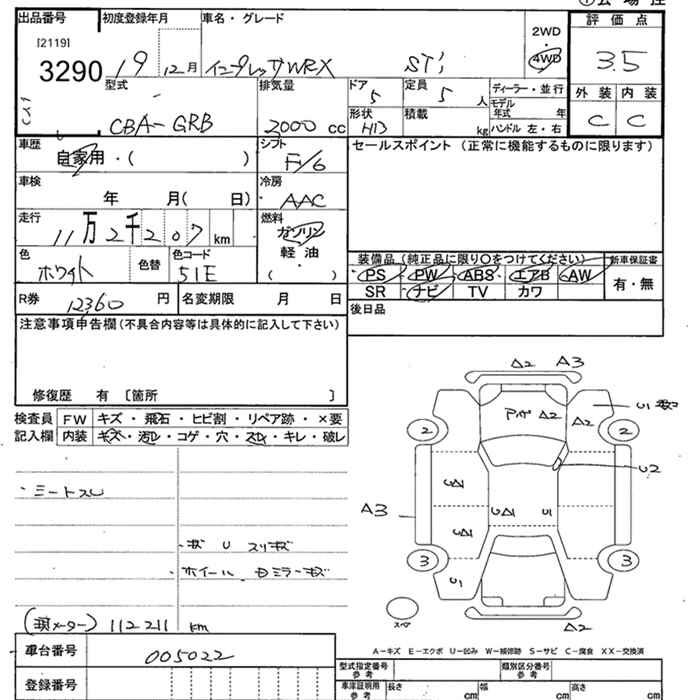 出品番号 初度登録年月 車名・グレード 評価点
[2119] 2WD
3290 19 12月 インプレッサWRX STi 4WD 3.5
型式 排気量 ドア 定員 ディーラー・並行 外装 内装
5 5 人 モデル年式 年
CBA-GRB 2000 cc 形状 HD 積載 kg ハンドル 左・右 C C
車歴 シフト セールスポイント (正常に機能するものに限ります)
自家用・( ) F/6
車検 冷房
年 月( 日) AAC
走行 燃料
11万2千207 km ガソリン
軽油
色 色替 色コード 装備品 (純正品に限り○をつけてください) 新車保証書
ホワイト 51E ( ) PS PW ABS エアB AW 有・無
SR ナビ TV カワ
R券 12360 円 名変期限 月 日 後日品
注意事項申告欄(不具合内容等は具体的に記入して下さい)
修復歴 有 [箇所 ]
検査員 FW キズ・飛石・ヒビ割・リペア跡・×要
記入欄 内装 キズ・汚レ・コゲ・穴・スレ・キレ・破レ
A2 A3
A2 A2
U1
2 2
U2
A3
U1
3 3
スペア
A2
・シートスレ
・ホイール ドミラーキズ
(現メーター) 112211 km
A-キズ E-エクボ U-凹み W-補修跡 S-サビ C-腐食 XX-交換済
車台番号 005022
型式指定番号 参考 類別区分番号 参考
登録番号
車庫証明用 参考 長さ cm 幅 cm 高さ cm